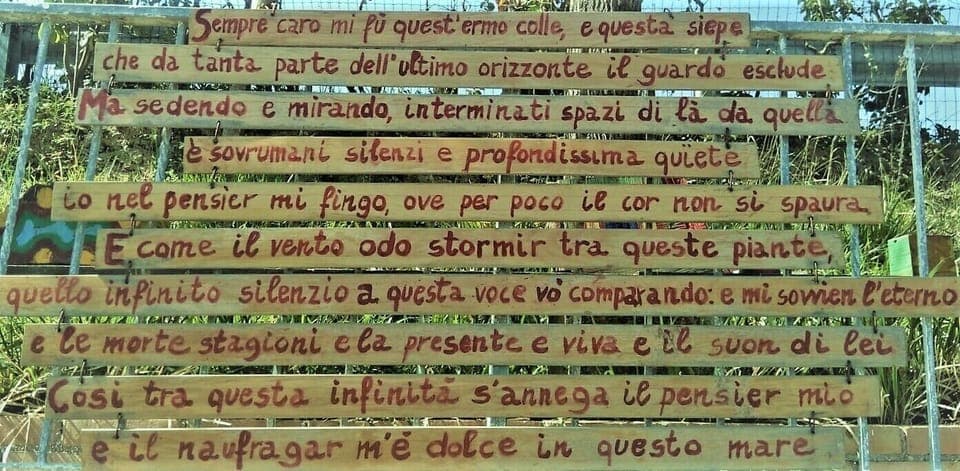 Sempre caro mi fù quest'ermo colle, e questa siepe
che da tanta parte dell'ultimo orizzonte il guardo esclude
Ma sedendo e mirando, interminati spazi di là da quella
è sovrumani silenzi e profondissima quïete
io nel pensier mi fingo, ove per poco il cor non si spaura
E come il vento odo stormir tra queste piante,
quello infinito silenzio a questa voce vò comparando: e mi sovvien l'eterno
e le morte stagioni e la presente e viva e il suon di lei
Così tra questa infinità s'annega il pensier mio
e il naufragar m'é dolce in questo mare